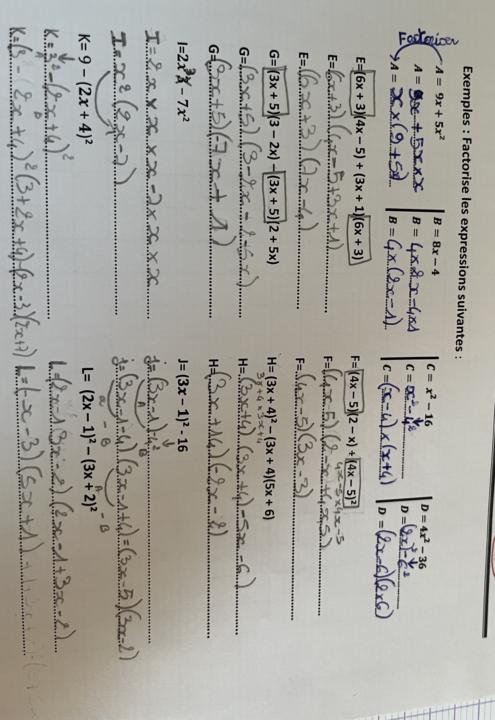 Exemples : Factorise les expressions suivantes :
Factoriser
A = 9x + 5x²
B = 8x − 4
C = x² − 16
D = 4x² − 36
A = 9x + 5x × x
B = 4×2x − 4×1
C = x² − 4²
D = (2x)² − 6²
A = x × (9+5x)
B = 4×(2x−1)
C = (x−4)×(x+4)
D = (2x−6)(2x6)
E= (6x + 3)(4x − 5) + (3x + 1)(6x + 3)
F= (4x − 5)(2 − x) + (4x − 5)²
4x−5×4x−5
E= (6x+3)(4x−5+3x+1)
F= (4x−5)(2−x+4x5)
E= (6x+3)(7x−4)
F= (4x−5)(3x−3)
G= (3x + 5)(3 − 2x) − (3x + 5)(2 + 5x)
H= (3x + 4)² − (3x + 4)(5x + 6)
3x+4×3x+4
G= (3x+5)(3−2x−2−5x)
H= (3x+4)(3x+4)−5x−6)
G= (3x+5)(−7x+1)
H= (3x+14)(−2x−2)
I=2x³ − 7x²
J= (3x − 1)² - 16
I= 2×x×x×x−7×x×x
J= (3x−1)²−4²
I= x²(2x−7)
J= (3x−1−4)(3x−1+4)=(3x−5)(3x−2)
K= 9 − (2x + 4)²
L= (2x − 1)² − (3x + 2)²
K= 3²−(2x+4)²
L= (2x−13x−2)(2x−1+3x−2)
K= (3−2x+4)²(3+2x+4)−(2x−3)(2x+7)
L= (−x−3)(5x+1)